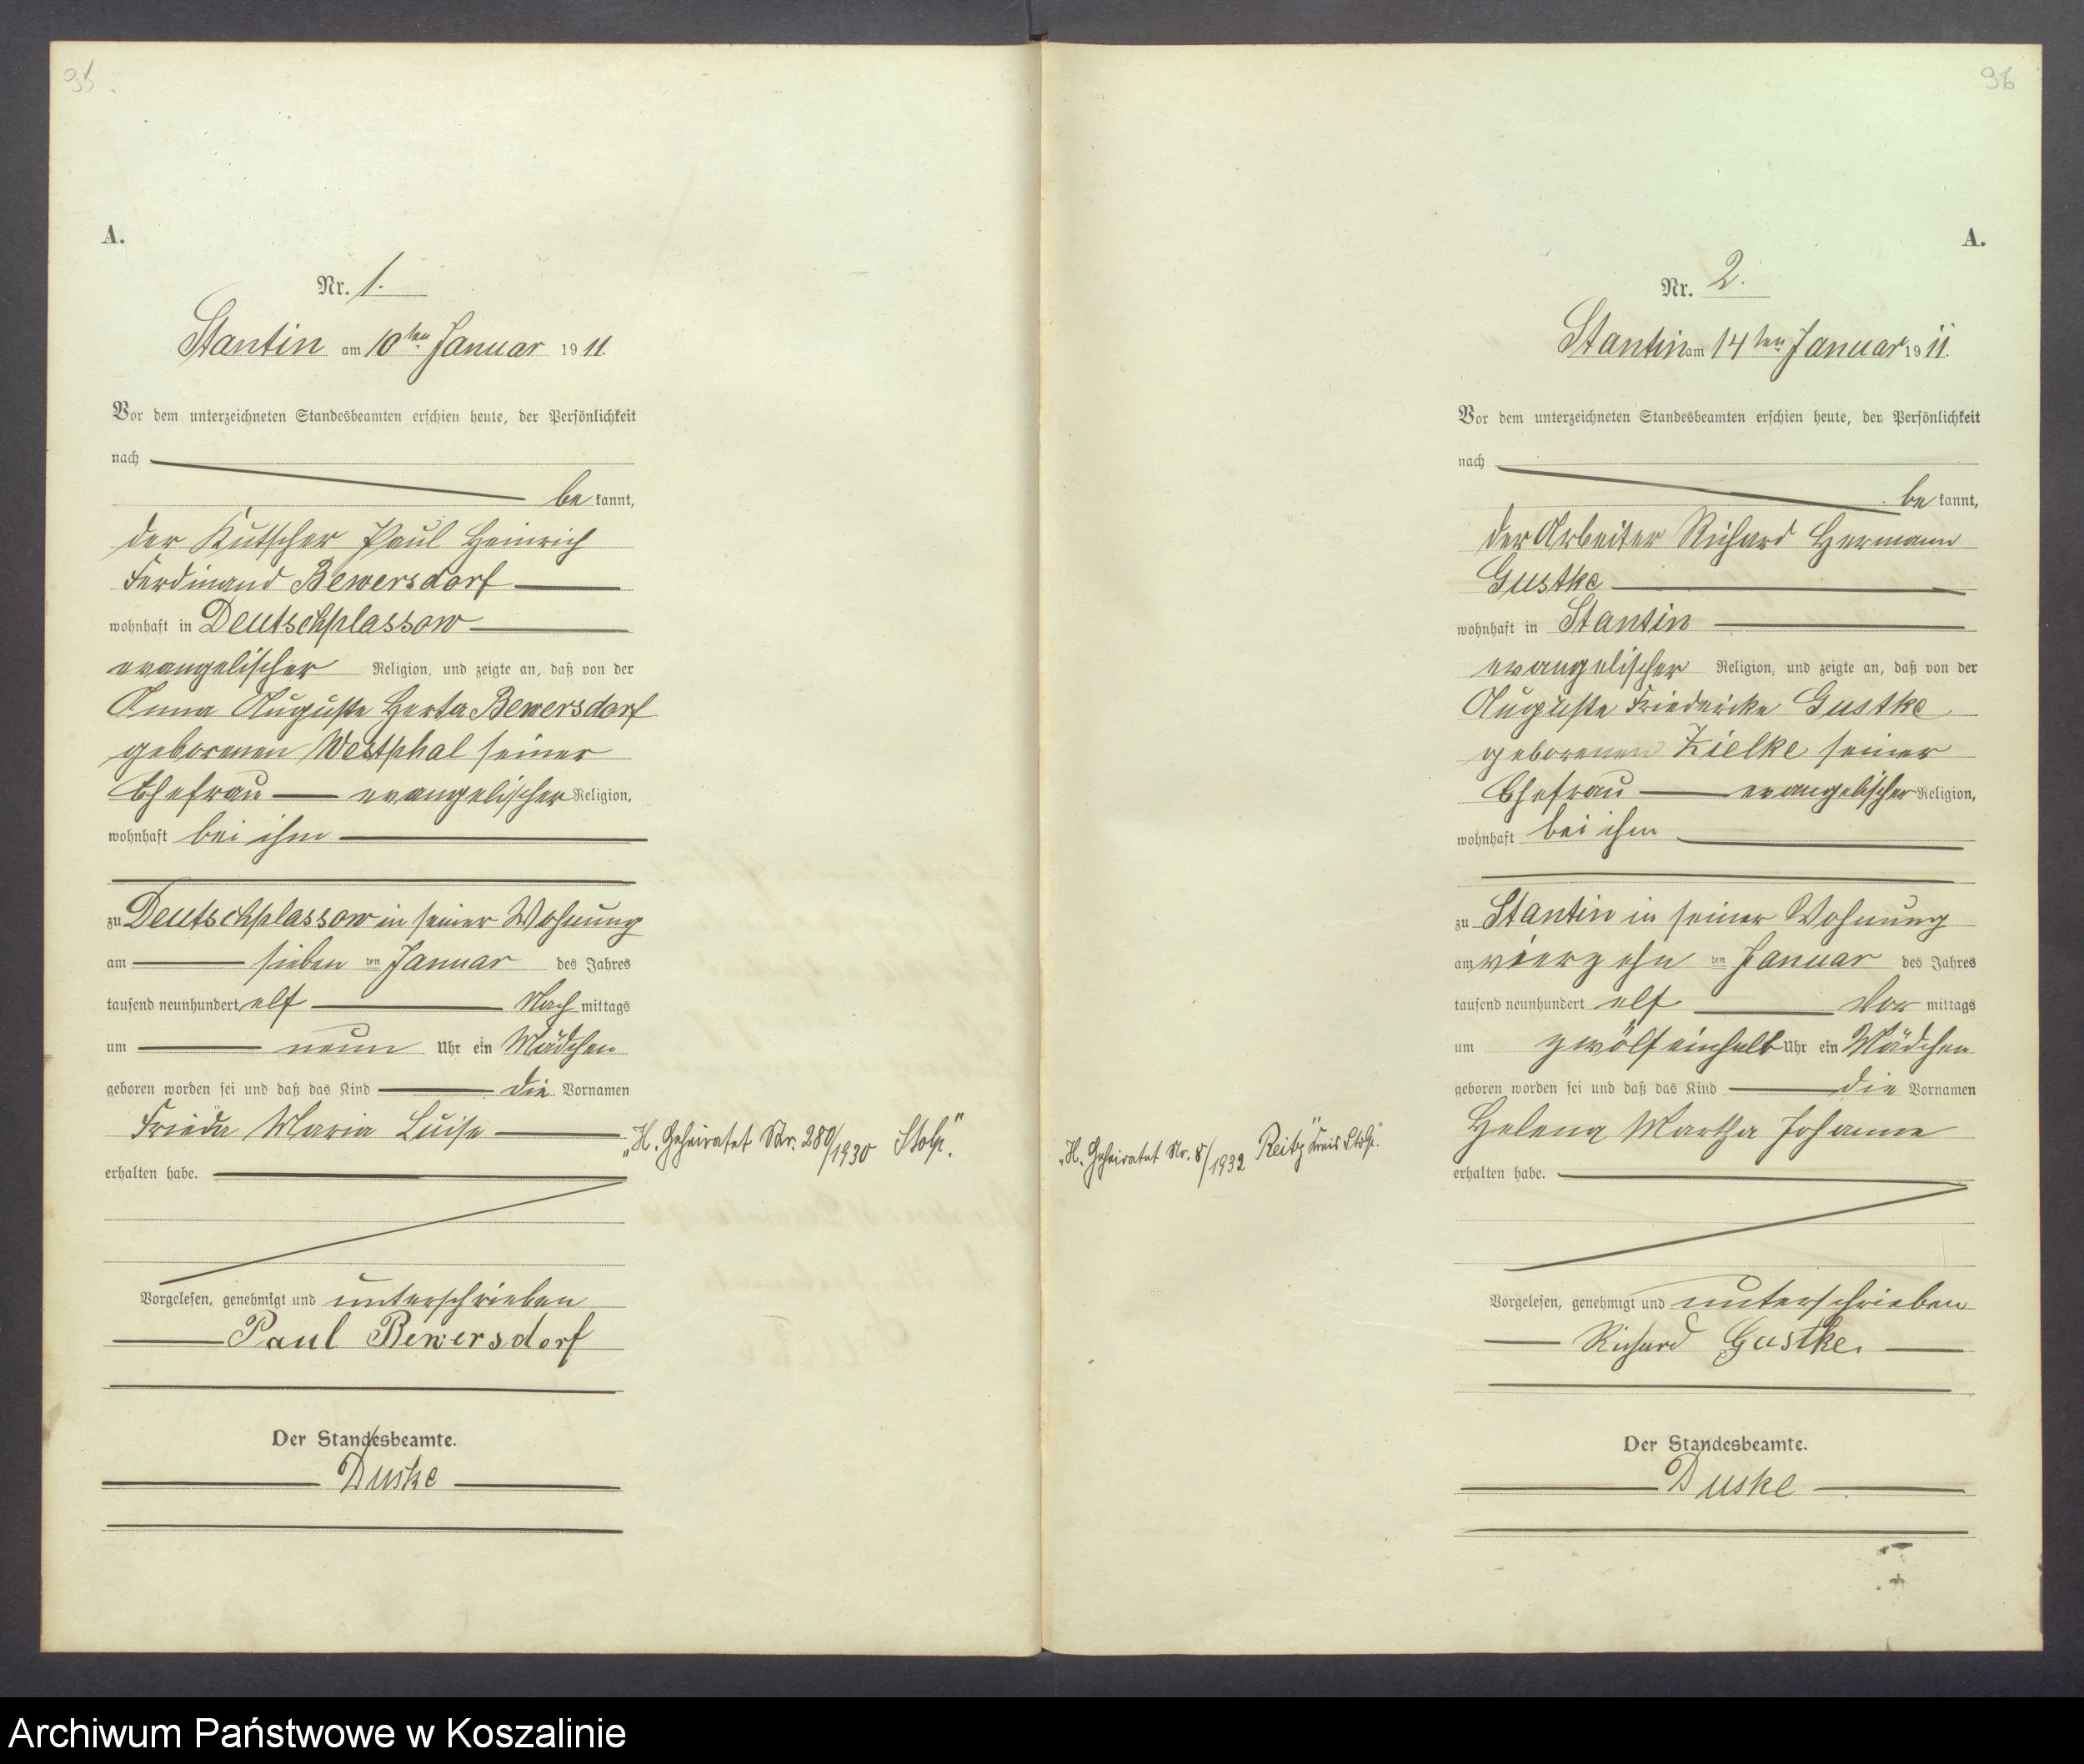 95.
A.
Nr. 1.
Stantin am 10ten Januar 1911.
Vor dem unterzeichneten Standesbeamten erschien heute, der Persönlichkeit
nach
be kannt,
der Kutscher Paul Heinrich
Ferdinand Bewersdorf
wohnhaft in Deutschplassow
evangelischer Religion, und zeigte an, daß von der
Anna Auguste Herta Bewersdorf
geborenen Westphal seiner
Ehefrau evangelischer Religion,
wohnhaft bei ihm
zu Deutschplassow in seiner Wohnung
am sieben ten Januar des Jahres
tausend neunhundert elf Nach mittags
um neun Uhr ein Mädchen
geboren worden sei und daß das Kind die Vornamen
Frieda Maria Luise
erhalten habe.
„H. Geheiratet Nr. 280/1930 Stolp."
Vorgelesen, genehmigt und unterschrieben
Paul Bewersdorf
Der Standesbeamte.
Duske
96
A.
Nr. 2.
Stantin am 14ten Januar 1911.
Vor dem unterzeichneten Standesbeamten erschien heute, der Persönlichkeit
nach
be kannt,
der Arbeiter Richard Hermann
Gustke
wohnhaft in Stantin
evangelischer Religion, und zeigte an, daß von der
Auguste Friedericke Gustke
geborenen Zielke seiner
Ehefrau evangelischer Religion,
wohnhaft bei ihm
zu Stantin in seiner Wohnung
am vierzehn ten Januar des Jahres
tausend neunhundert elf Vor mittags
um zwölfeinhalb Uhr ein Mädchen
geboren worden sei und daß das Kind die Vornamen
Helena Martha Johanne
erhalten habe.
„H. Geheiratet Nr. 8/1932 Reitz" Kreis Stolp."
Vorgelesen, genehmigt und unterschrieben
Richard Gustke.
Der Standesbeamte.
Duske
Archiwum Państwowe w Koszalinie